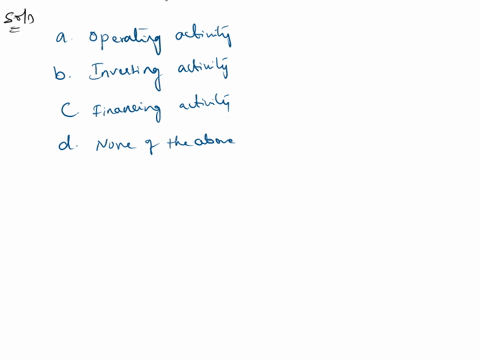 Soln
a. Operating activity
b. Investing activity
C. Financing activity
d. None of the above